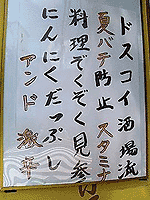 ドスコイ酒場流
夏バテ防止スタミナ
料理ぞくぞく見参!!
にんにくだっぷし
アンド激辛